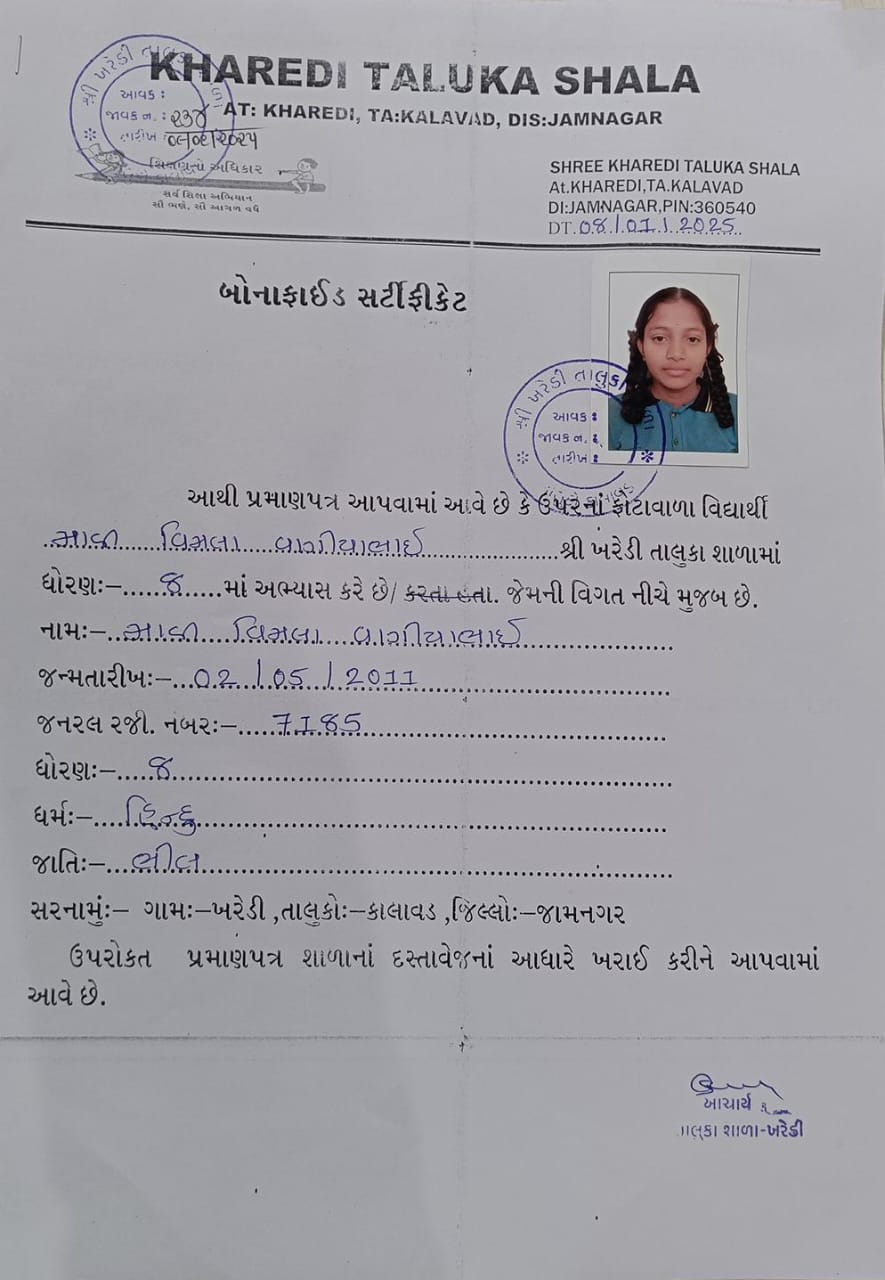 KHAREDI TALUKA SHALA
AT: KHAREDI, TA:KALAVAD, DIS:JAMNAGAR
શ્રી ખરેડી તાલુકા
આવક :
જાવક ન. : ૨૩૪
તારીખ :
શિક્ષણનો અધિકાર
સૌ ભણે, સૌ આગળ વધે
SHREE KHAREDI TALUKA SHALA
At.KHAREDI,TA.KALAVAD
DI:JAMNAGAR,PIN:360540
DT.08/07/2025
બોનાફાઈડ સર્ટીફીકેટ
શ્રી ખરેડી તાલુકા
આવક :
જાવક ન. :
તારીખ :
આથી પ્રમાણપત્ર આપવામાં આવે છે કે ઉપરનાં ફોટાવાળા વિદ્યાર્થી
વિમલા શ્રી ખરેડી તાલુકા શાળામાં
ધોરણઃ–......૮......માં અભ્યાસ કરે છે/ કરતા હતા. જેમની વિગત નીચે મુજબ છે.
નામઃ– વિમલા
જન્મતારીખઃ–...02/05/2011
જનરલ રજી. નંબરઃ–.....7185
ધોરણઃ–.....૮
ધર્મઃ–....હિન્દુ
જાતિઃ–...ભીલ
સરનામુંઃ– ગામઃ–ખરેડી ,તાલુકોઃ–કાલાવડ ,જિલ્લોઃ–જામનગર
ઉપરોકત પ્રમાણપત્ર શાળાનાં દસ્તાવેજનાં આધારે ખરાઈ કરીને આપવામાં
આવે છે.
આચાર્ય
તાલુકા શાળા-ખરેડી